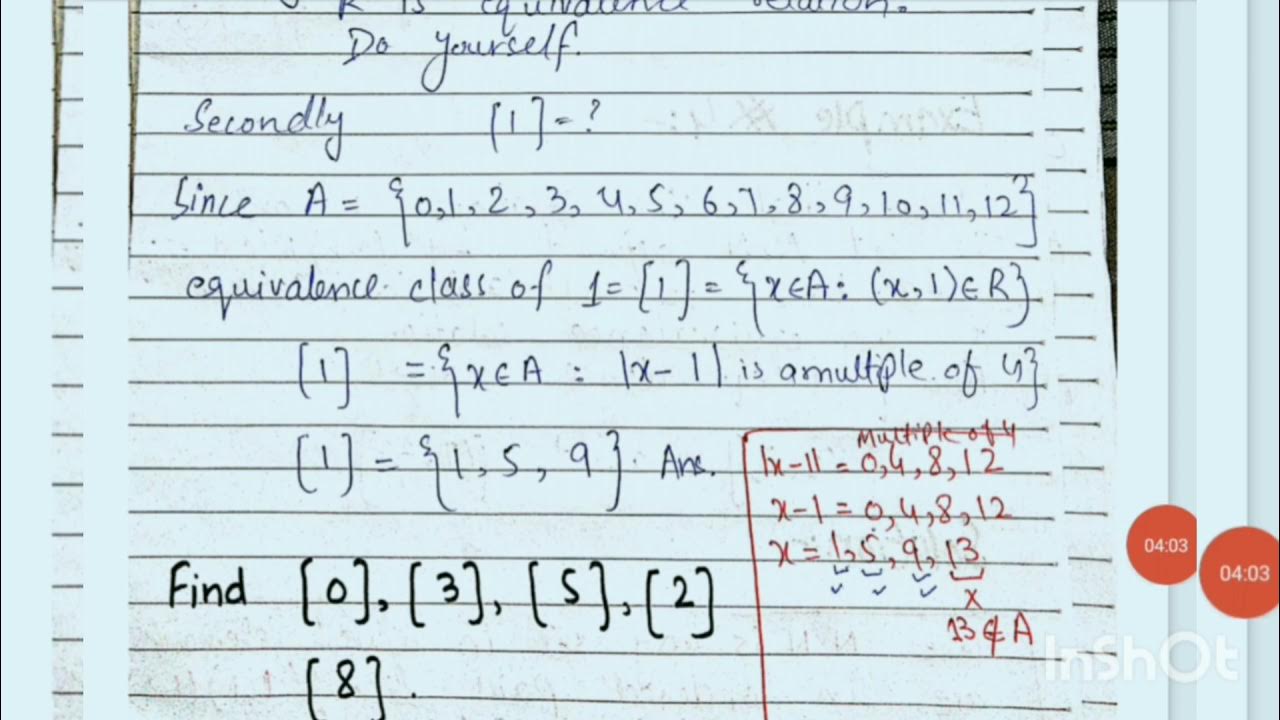 R is equivalence relation.
Do yourself.
Secondly [1]=?
Since A = {0,1,2,3,4,5,6,7,8,9,10,11,12}
equivalence class of 1=[1] = {x∈A: (x,1)∈R}
[1] = {x∈A : |x-1| is a multiple of 4}
[1] = {1, 5, 9}. Ans.
Multiple of 4
|x-1| = 0,4,8,12
x-1 = 0,4,8,12
x = 1,5,9,13
x
13∉A
Find [0],[3],[5],[2]
[8].
04:03
04:03
InShOt